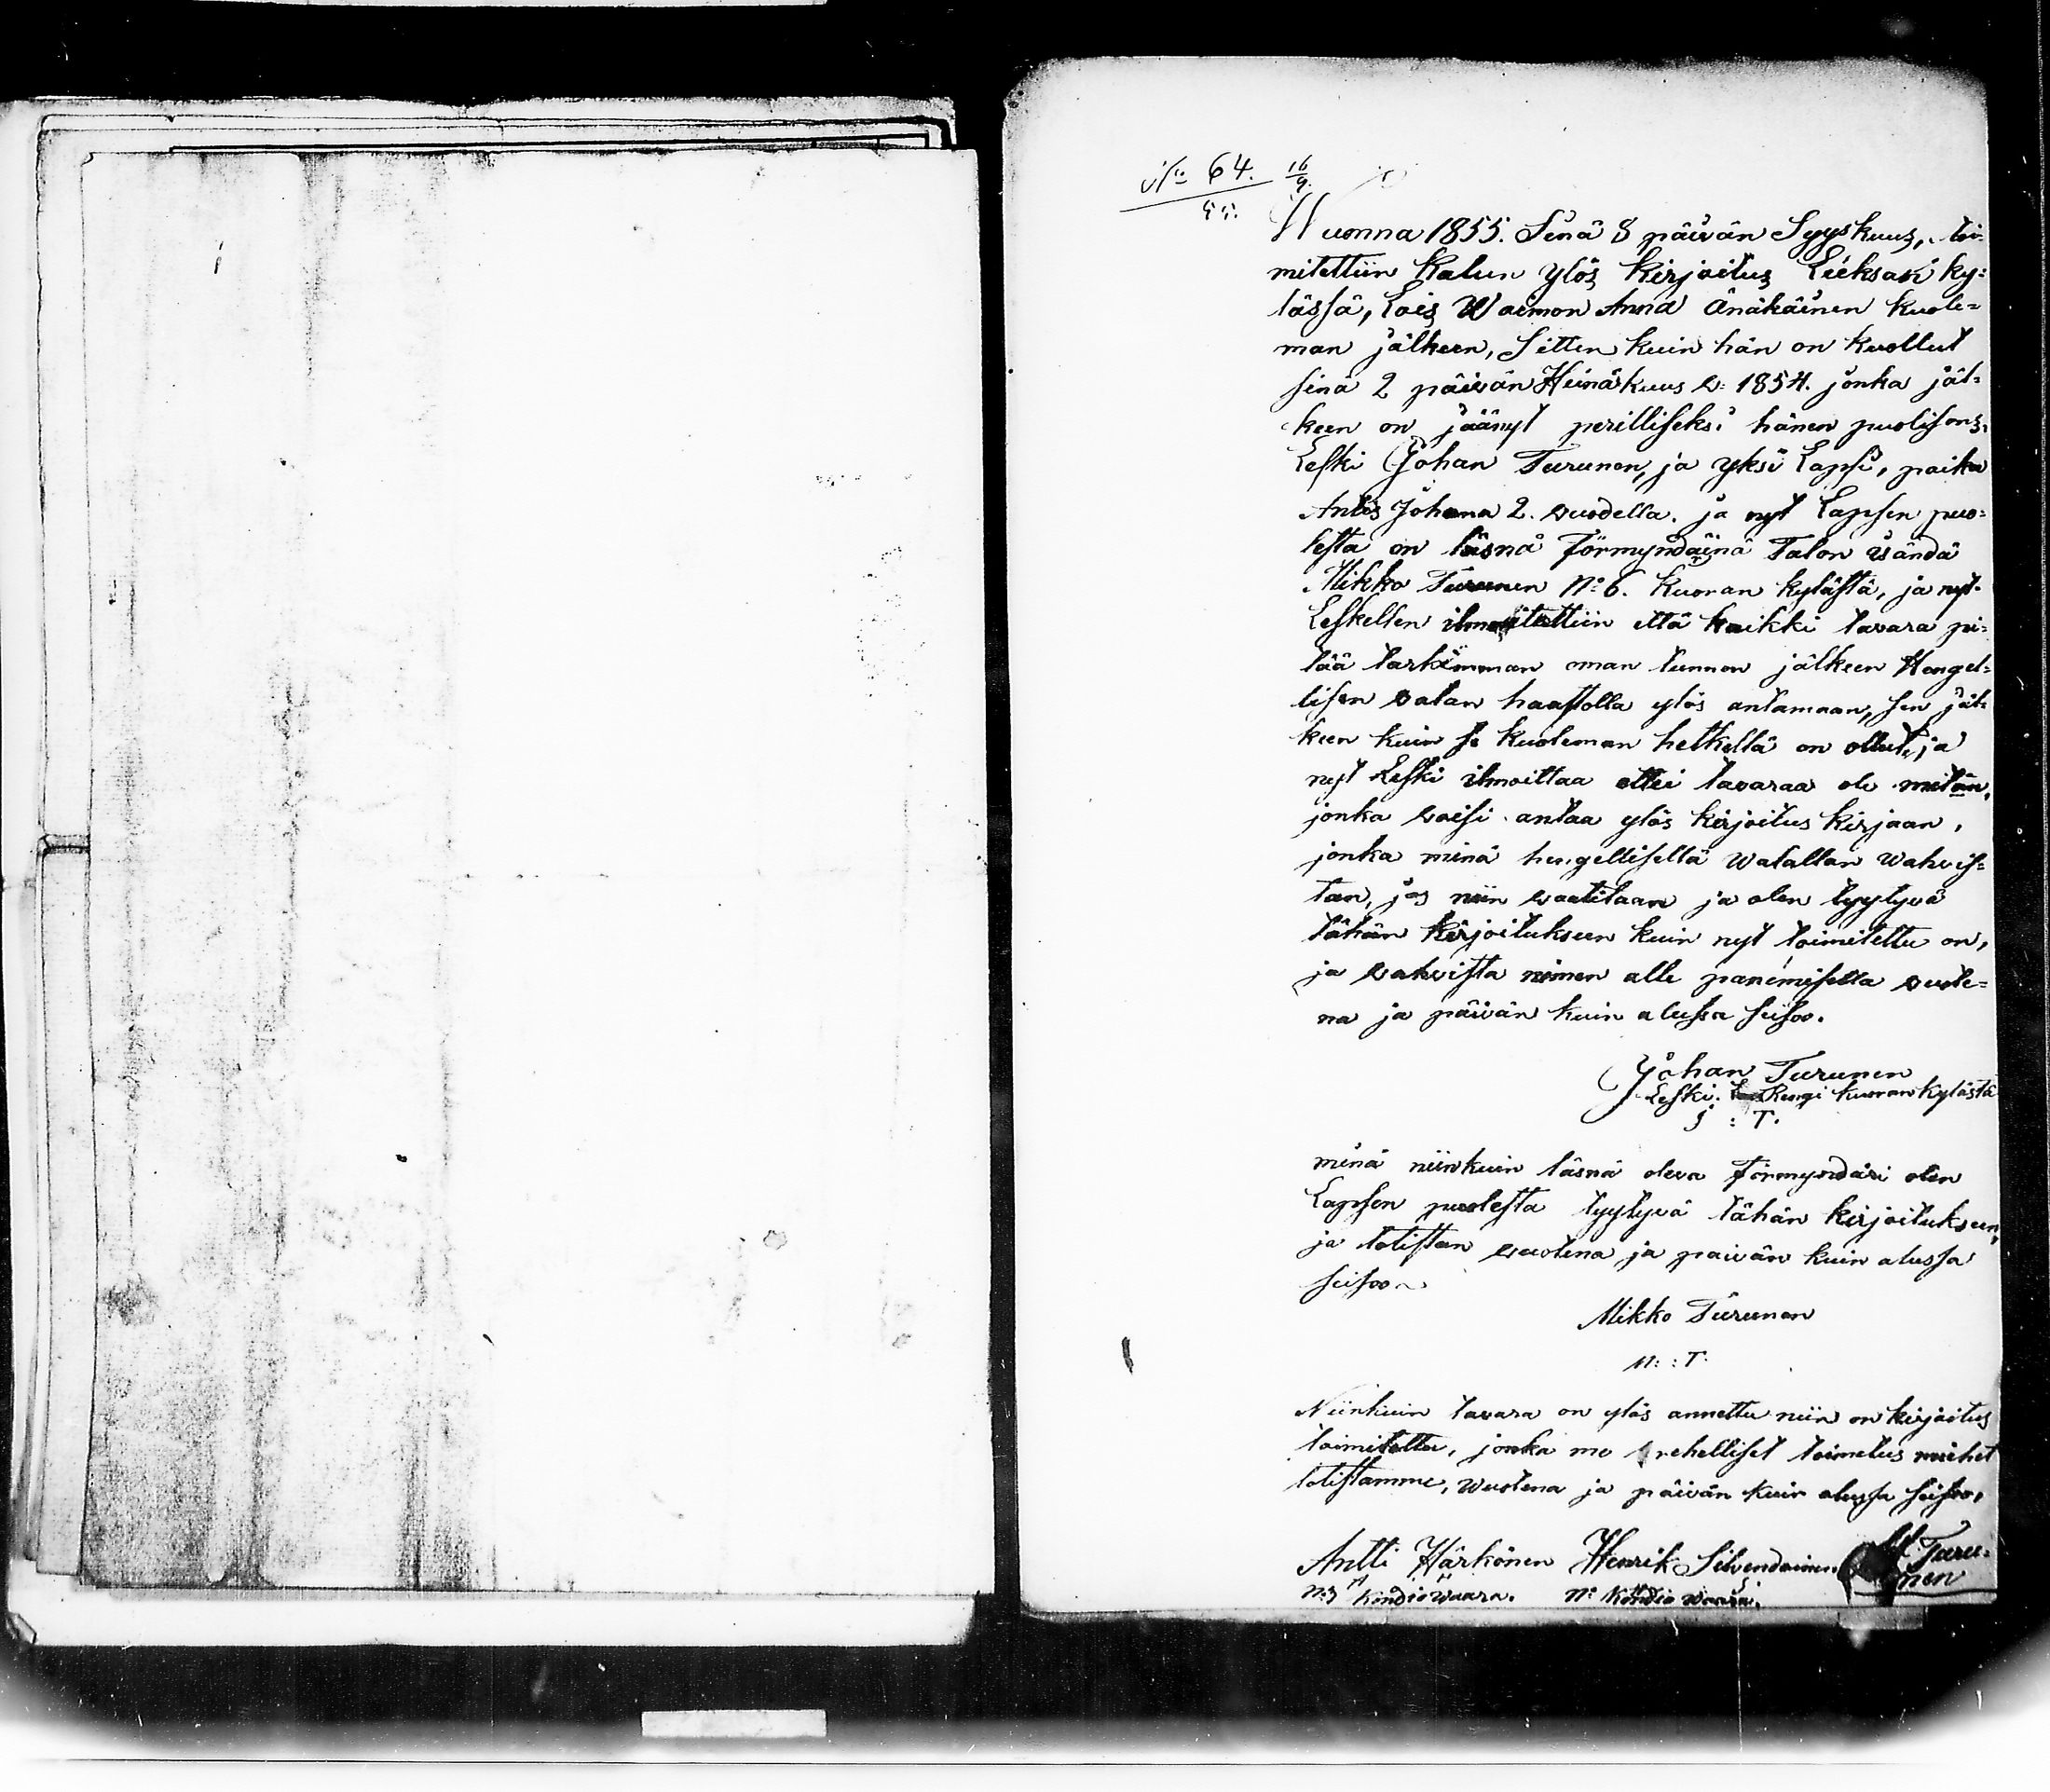 No 64. 16/9.
55.
Wuonna 1855. Senä 8 päivän Syyskuus, toi-
mitettiin Kalun ylös kirjoitus Lieksan ky-
lässä, Lois Waimon Anna Änäkäinen kuole-
man jälkeen, Sitten kuin hän on kuollut
sinä 2 päivän Heinäkuus v: 1854. jonka jäl-
keen on jäänyt perilliseksi hänen puolisons,
Leski Johan Turunen, ja yksi Lapsi, poika
Antis Johana 2. vuodella. ja nyt Lapsen puo-
lesta on läsnä Förmyndäinä Talon isändä
Mikko Turunen No 6. Kuoran kylästä, ja nyt
Leskellen ilmoitettiin että kaikki tavara pi-
tää tarkimman oman tunnon jälkeen Hengel-
lisen valan haastolla ylös antamaan, sen jäl-
keen kuin se kuoleman hetkellä on ollut, ja
nyt Leski ilmoittaa ettei tavaraa ole mitän,
jonka voisi antaa ylös kirjoitus kirjaan,
jonka minä hengellisellä walallan wahvis-
tan, jos niin vaatitaan ja olen tyytyvä
tähän kirjoitukseen kuin nyt toimitettu on,
ja vahvista nimen alle panemisella vuote-
na ja päivän kuin alussa seisoo.
Johan Turunen
Leski. Rengi kuoran kylästä
J : T.
minä niinkuin läsnä oleva Förmyndäri olen
Lapsen puolesta tyytyvä tähän kirjoitukseen,
ja totistan vuotena ja paivän kuin alussa
seisoo.
Mikko Turunen
M: : T.
Niinkuin tavara on ylös annettu niin on kirjoitus
toimitettu, jonka me rehelliset toimetus miehet
totistamme, wuotena ja päivän kuin alussa seisoo,
Antti Härkönen Henrik Silvendoinen M. Turu-
nen
No 3 Kondiowaara. No Kondio waara.